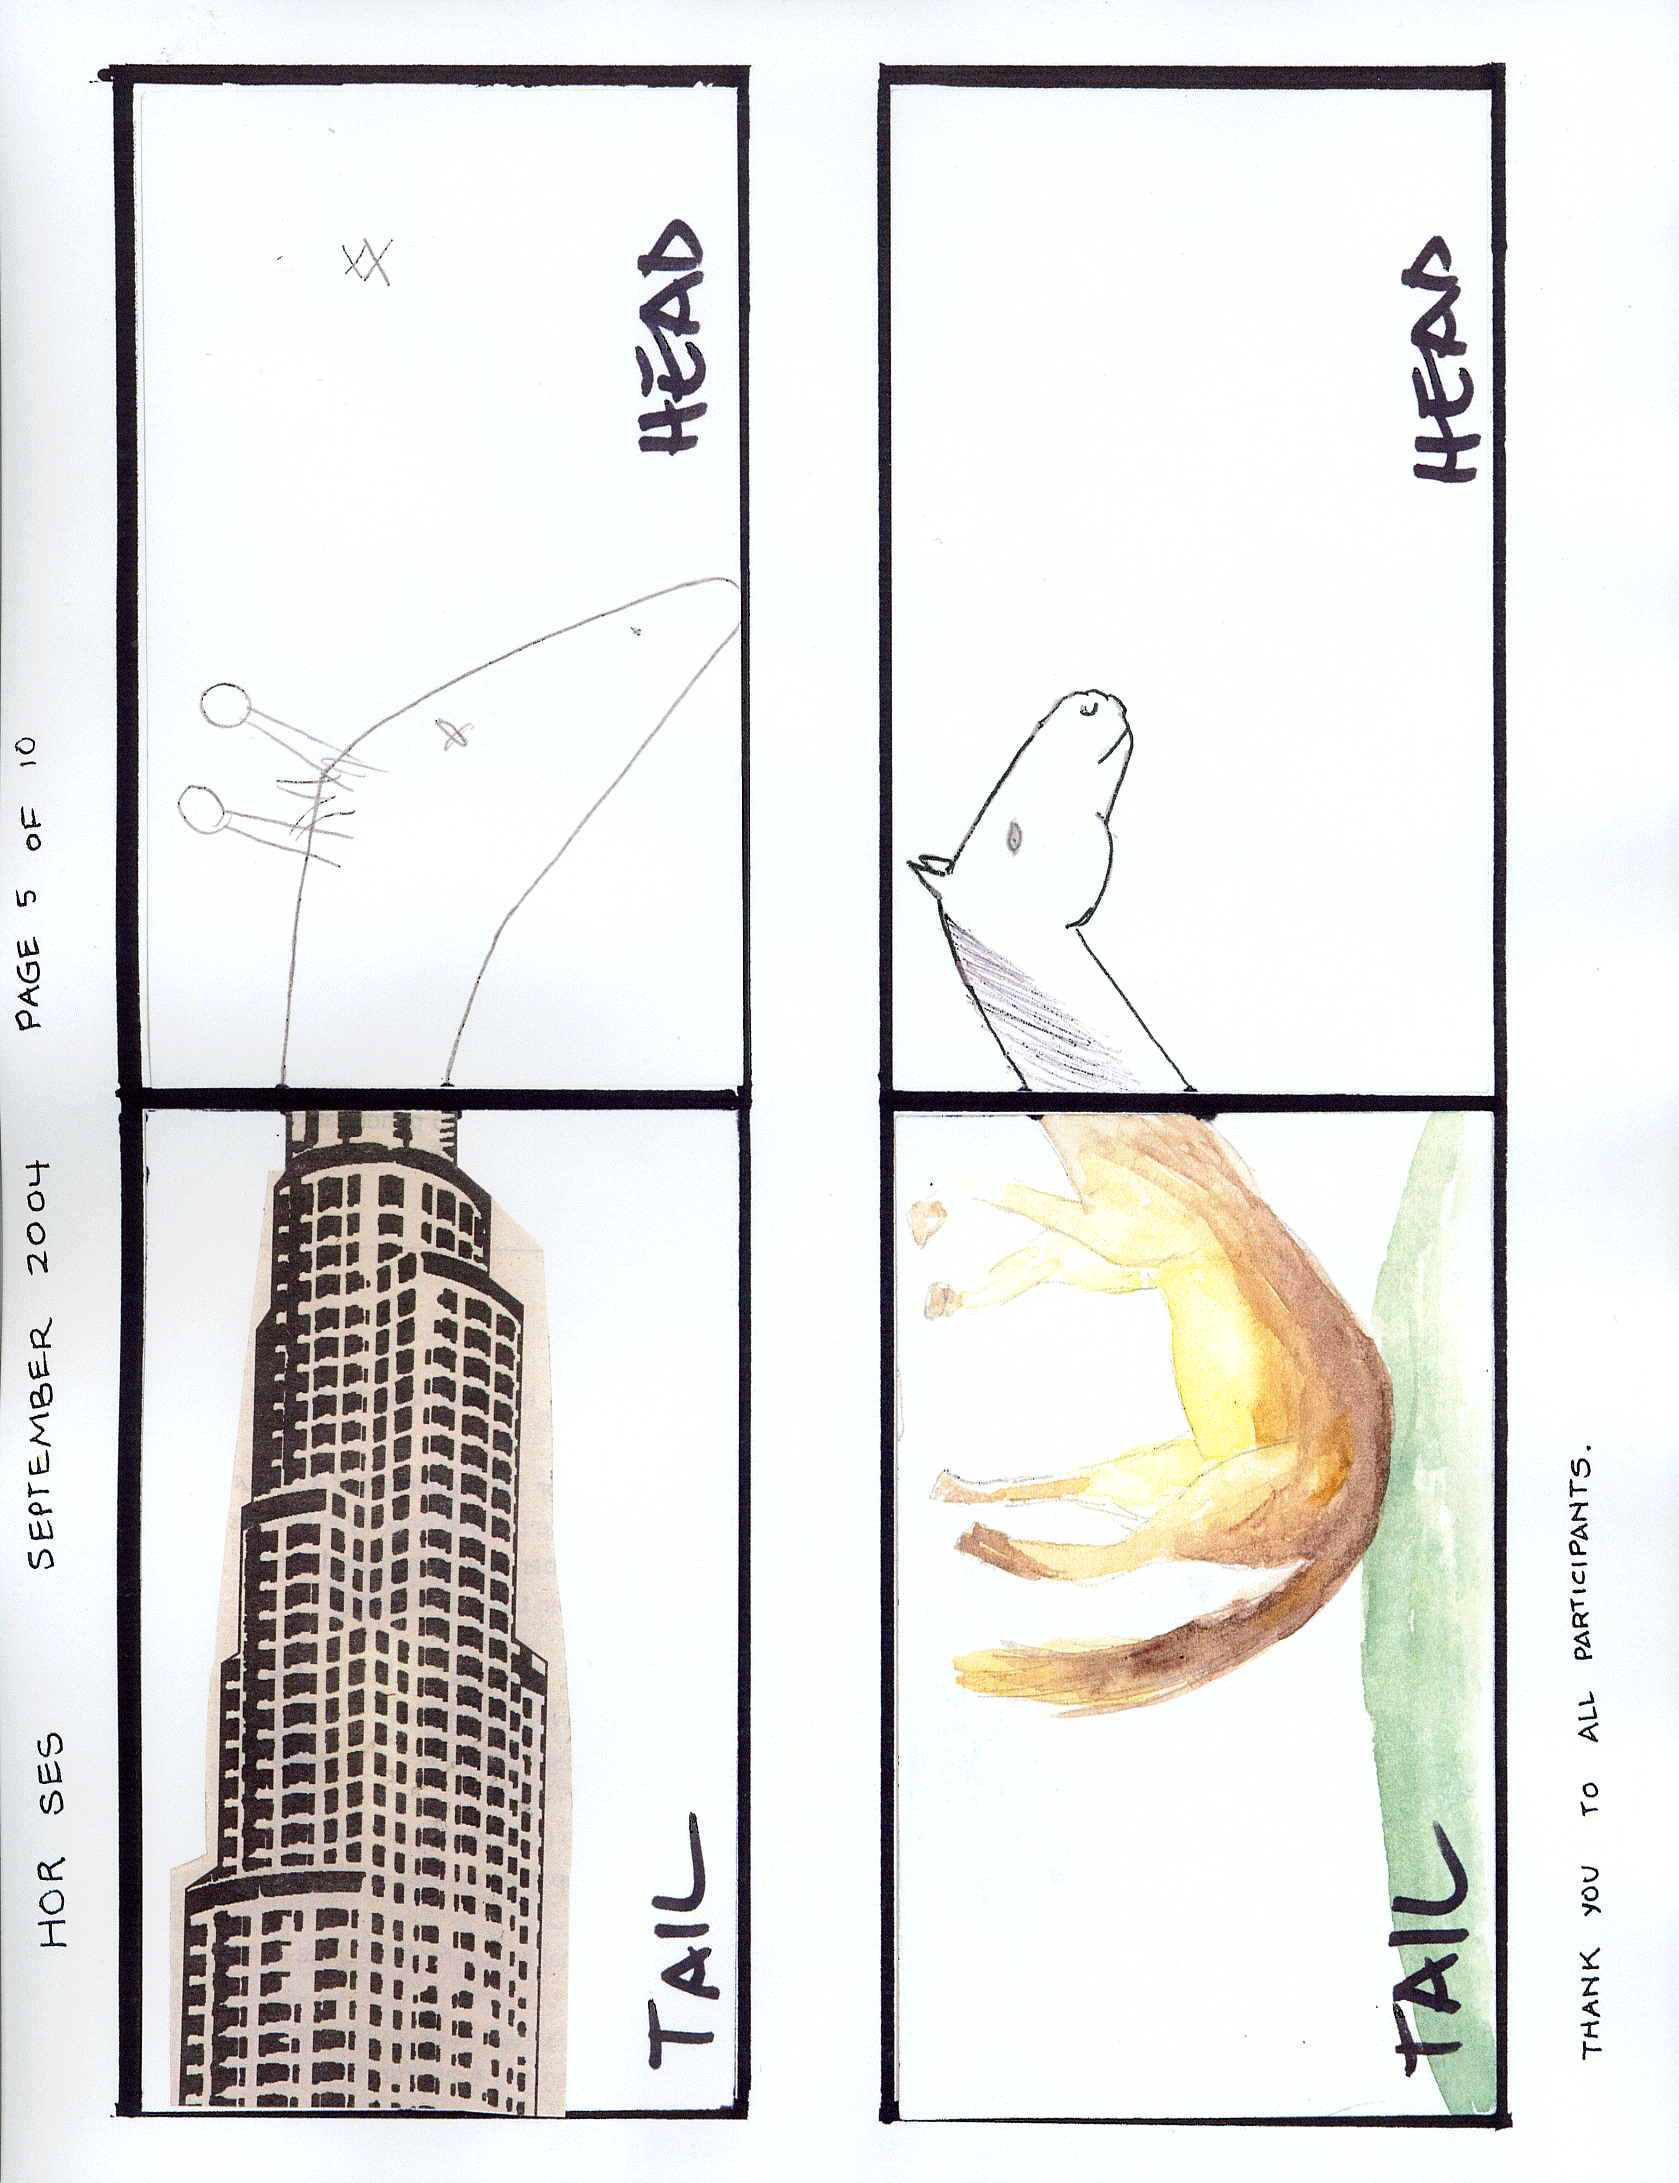 HOR SES SEPTEMBER 2004 PAGE 5 OF 10
TAIL
HEAD
TAIL
HEAD
THANK YOU TO ALL PARTICIPANTS.